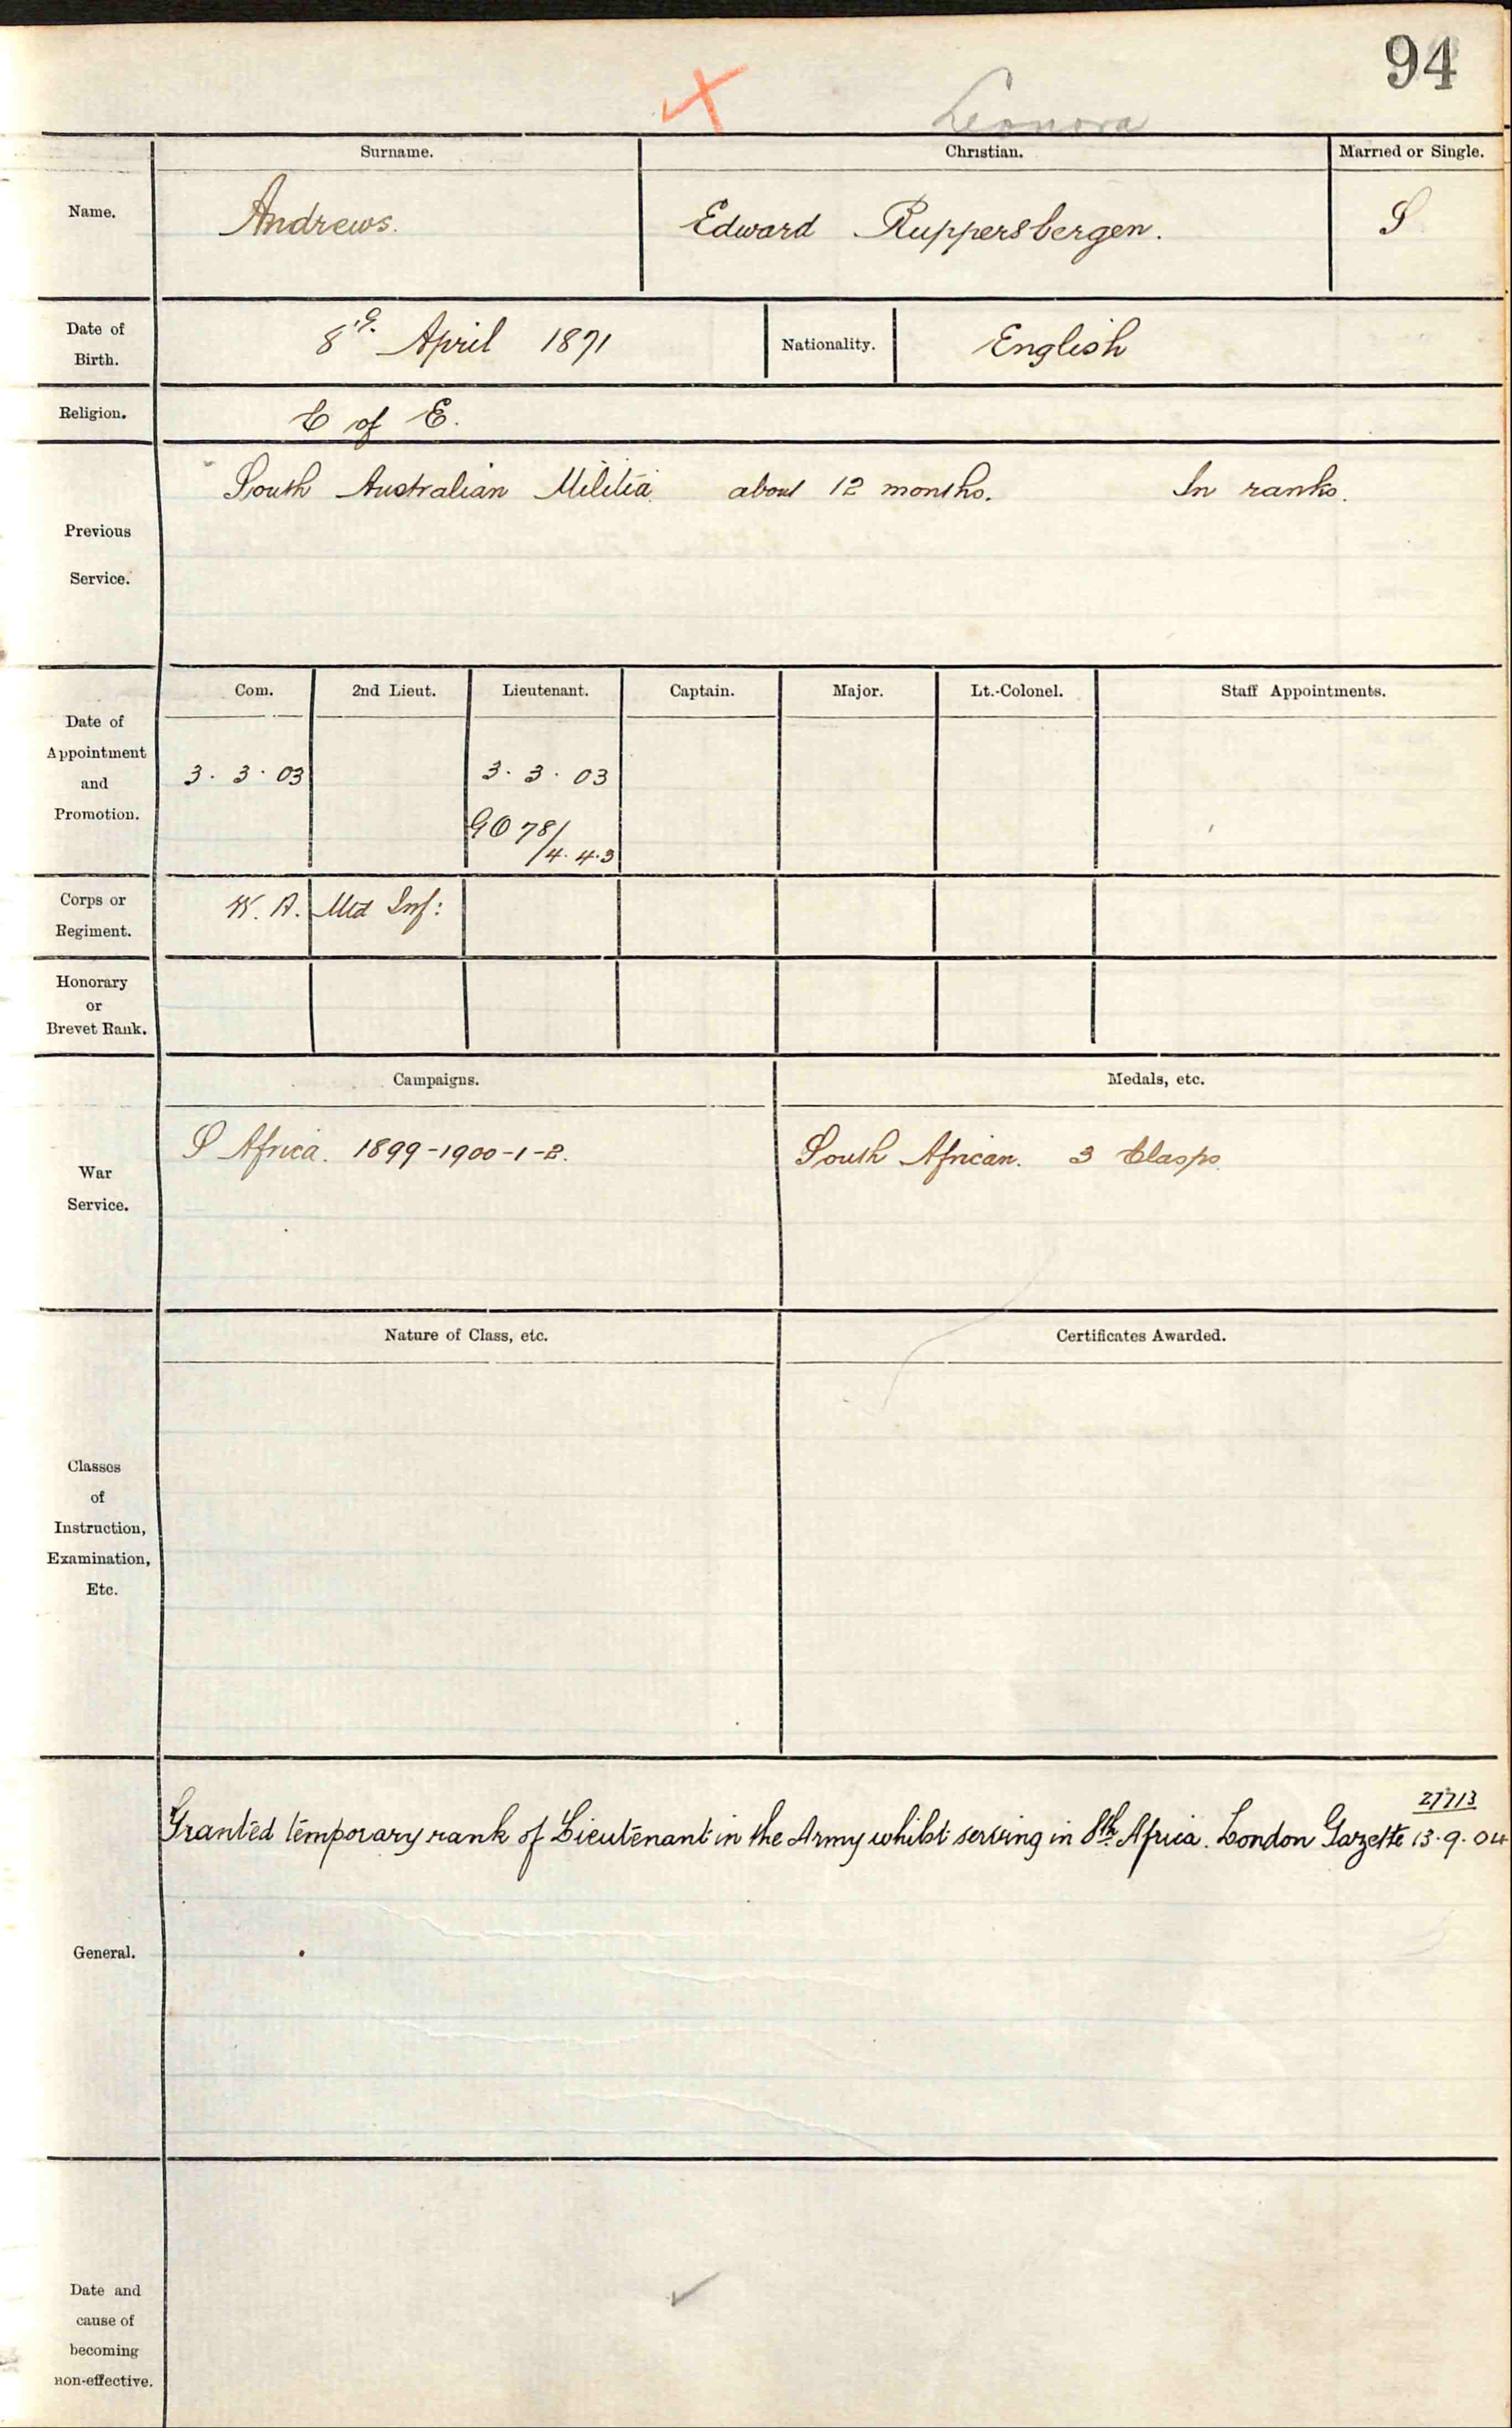 94
Leonora
Surname. Christian. Married or Single.
Name. Andrews. Edward Ruppersbergen. S
Date of Birth. 8th April 1871 Nationality. English
Religion. C of E.
Previous Service. South Australian Militia about 12 months. In ranks.
Com. 2nd Lieut. Lieutenant. Captain. Major. Lt.-Colonel. Staff Appointments.
Date of Appointment and Promotion. 3. 3. 03 3. 3. 03
GO 78/4.4.3
Corps or Regiment. W. A. Mtd Inf:
Honorary or Brevet Rank.
Campaigns. Medals, etc.
War Service. S Africa. 1899-1900-1-2. South African. 3 Clasps.
Nature of Class, etc. Certificates Awarded.
Classes of Instruction, Examination, Etc.
27713
Granted temporary rank of Lieutenant in the Army whilst serving in Sth Africa. London Gazette 13.9.04
General.
Date and cause of becoming non-effective.